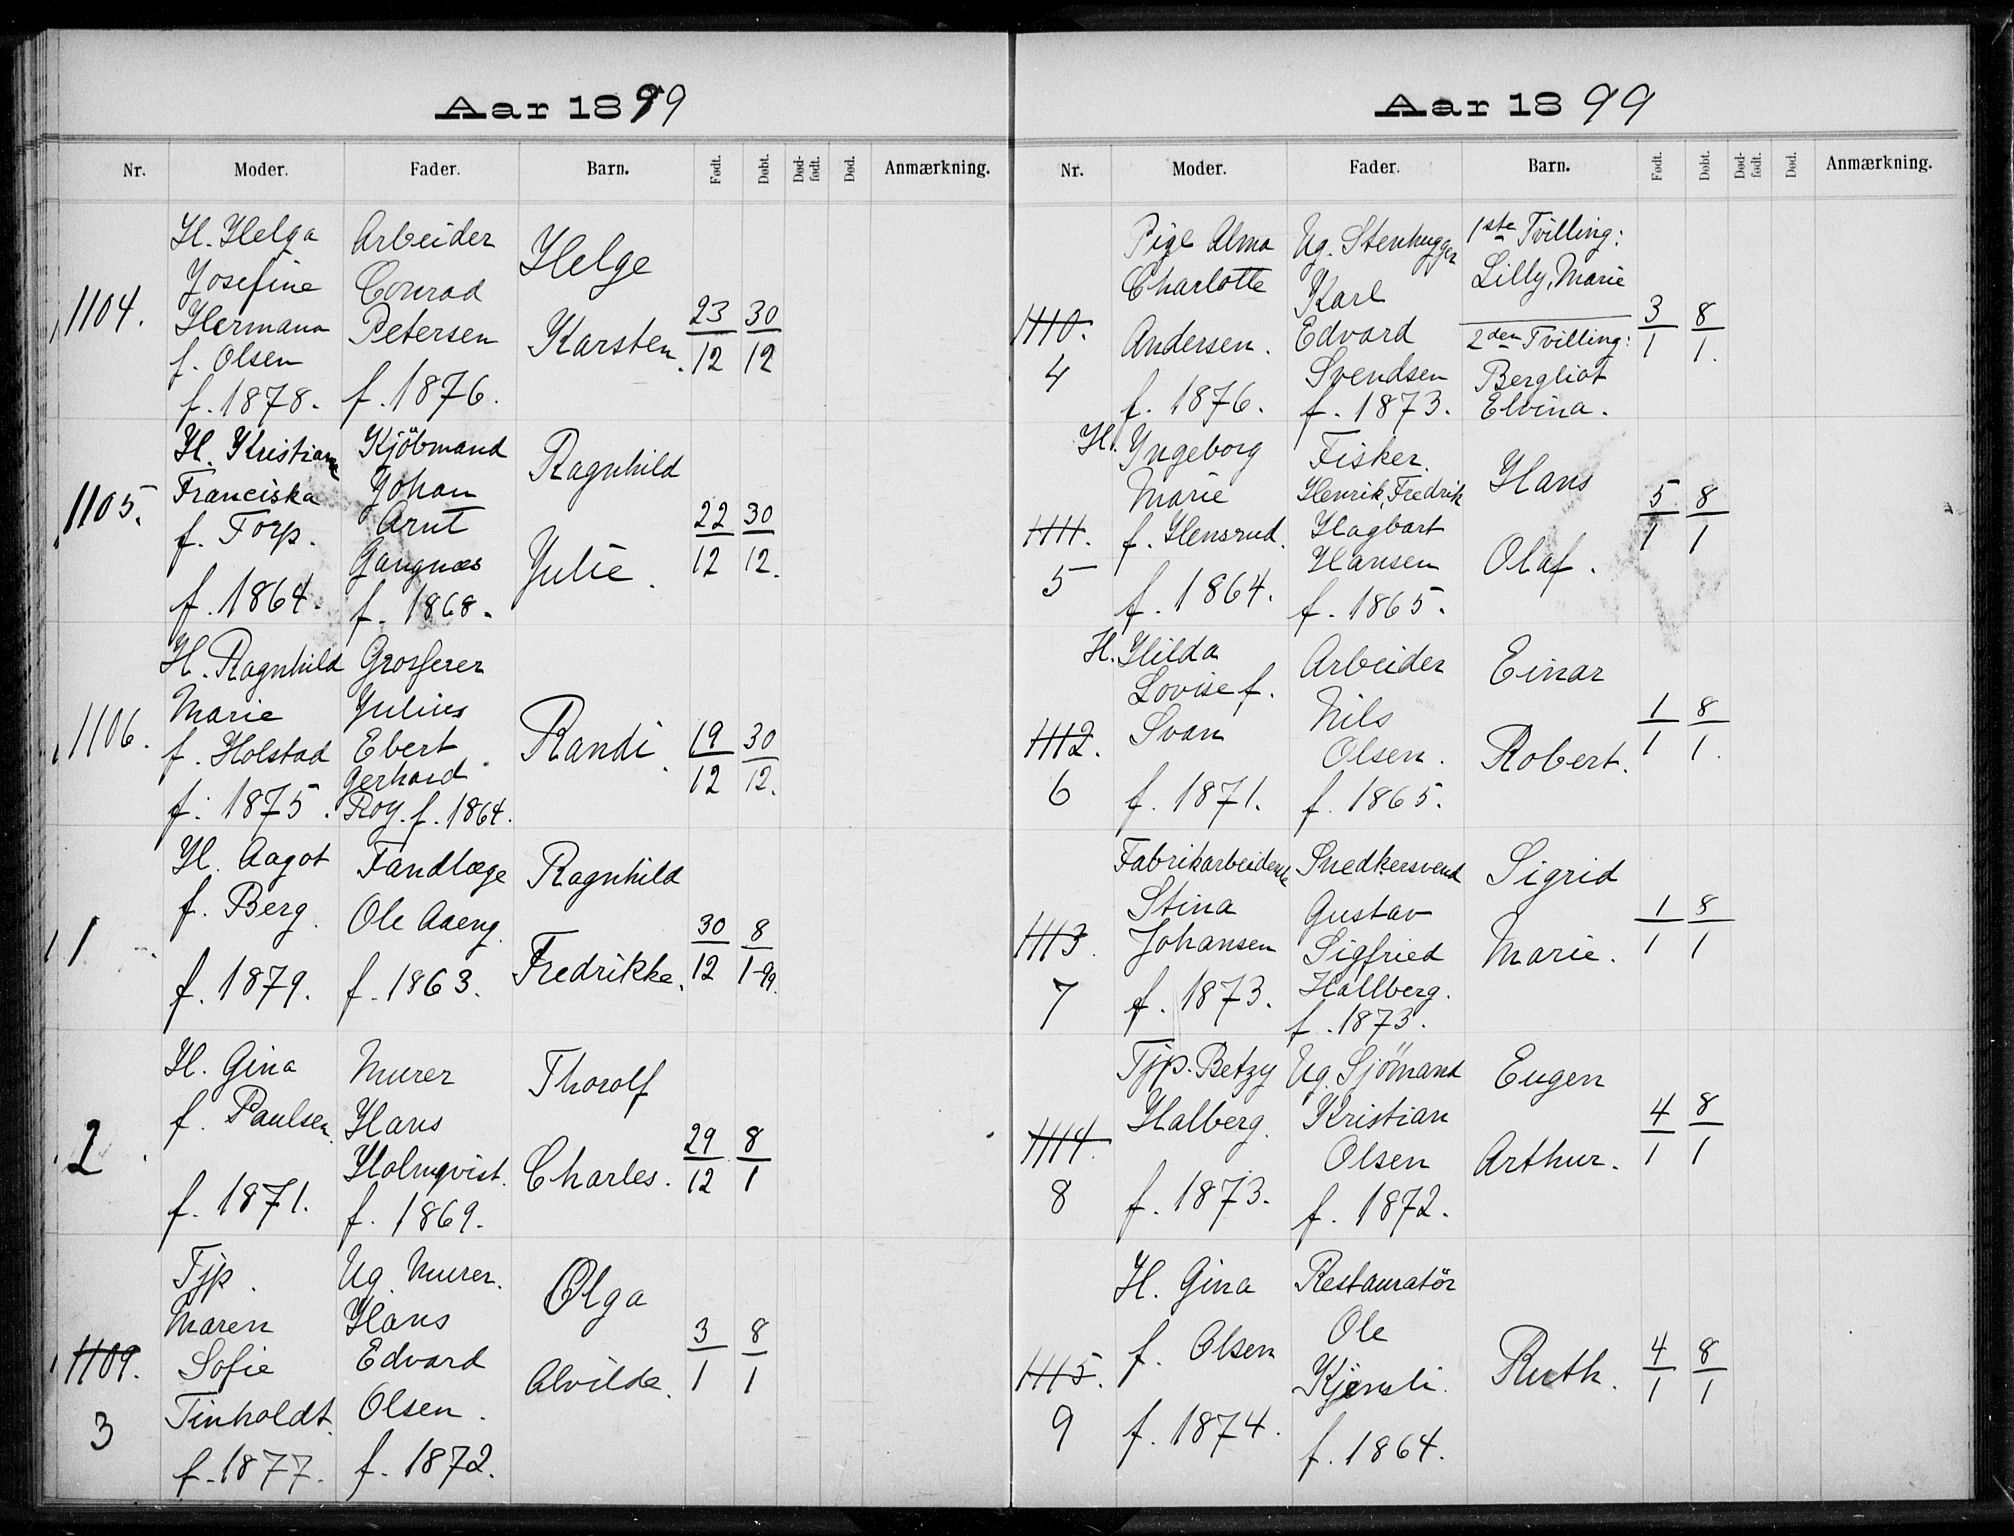 Aar 1899
Nr. Moder. Fader. Barn. Født. Døbt. Død-født. Død. Anmærkning.
1104.
H. Helga
Josefine
Hermana
f. Olsen
f. 1878.
Arbeider
Conrad
Petersen
f. 1876.
Helge
Karsten.
23/12 30/12
1105.
H. Kristiane
Franciska
f. Forp.
f. 1864.
Kjöbmand
Johan
Arnt
Gangnæs
f. 1868.
Ragnhild
Julie.
22/12 30/12.
1106.
H. Ragnhild
Marie
f. Holstad
f. 1875.
Grosserer
Julius
Ebert
Gerhard
Roy. f. 1864.
Randi.
19/12 30/12.
1
H. Aagot
f. Berg.
f. 1879.
Tandlæge
Ole Aaeng.
f. 1863.
Ragnhild
Fredrikke.
30/12 8/1-99.
2
H. Gina
f. Paulsen.
f. 1871.
Murer
Hans
Holmqvist.
f. 1869.
Thorolf
Charles.
29/12 8/1
1109.
3
Tjp.
Maren
Sofie
Tinholdt.
f. 1877.
Ug. Murer.
Hans
Edvard
Olsen.
f. 1872.
Olga
Alvilde.
3/1 8/1
Aar 1899
Nr. Moder. Fader. Barn. Født. Døbt. Død-født. Død. Anmærkning.
1110.
4
Pige Alma
Charlotte
Andersen.
f. 1876.
Ug. Stenhugger
Karl
Edvard
Svendsen
f. 1873.
1ste Tvilling:
Lilly, Marie
2den Tvilling:
Bergliot
Elvina.
3/1 8/1.
1111.
5
H. Ingeborg
Marie
f. Hensrud.
f. 1864.
Fisker.
Henrik, Fredrik
Hagbart
Hansen
f. 1865.
Hans
Olaf.
5/1 8/1
1112.
6
H. Hilda
Lovise f.
Svan
f. 1871.
Arbeider
Nils
Olsen.
f. 1865.
Einar
Robert.
1/1 8/1.
1113.
7
Fabrikarbeiderske
Stina
Johansen
f. 1873.
Snedkersvend
Gustav
Sigfried
Hallberg.
f. 1873.
Sigrid
Marie.
1/1 8/1
1114.
8
Tjp. Betzy
Halberg.
f. 1873.
Ug. Sjömand
Kristian
Olsen
f. 1872.
Eugen
Arthur.
4/1 8/1
1115.
9
H. Gina
f. Olsen
f. 1874.
Restauratör
Ole
Kjensli.
f. 1864.
Ruth.
4/1 8/1